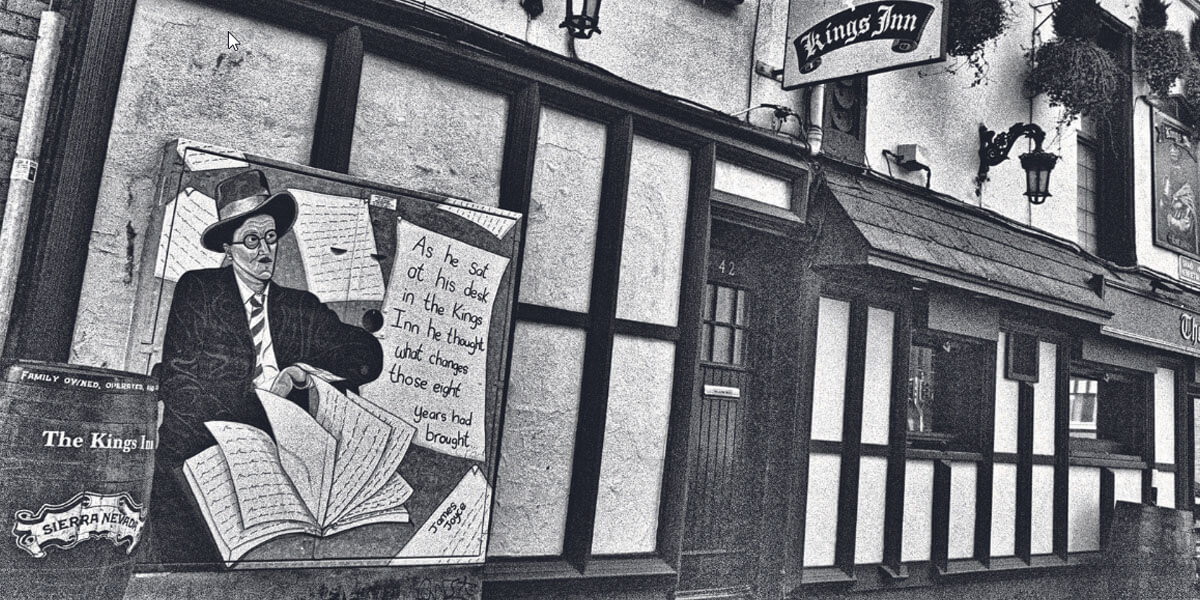 Kings Inn
As he sat
at his desk
in the Kings
Inn he thought
what changes
those eight
years had
brought
James
Joyce
42
FAMILY OWNED, OPERATED,
The Kings Inn
SIERRA NEVADA